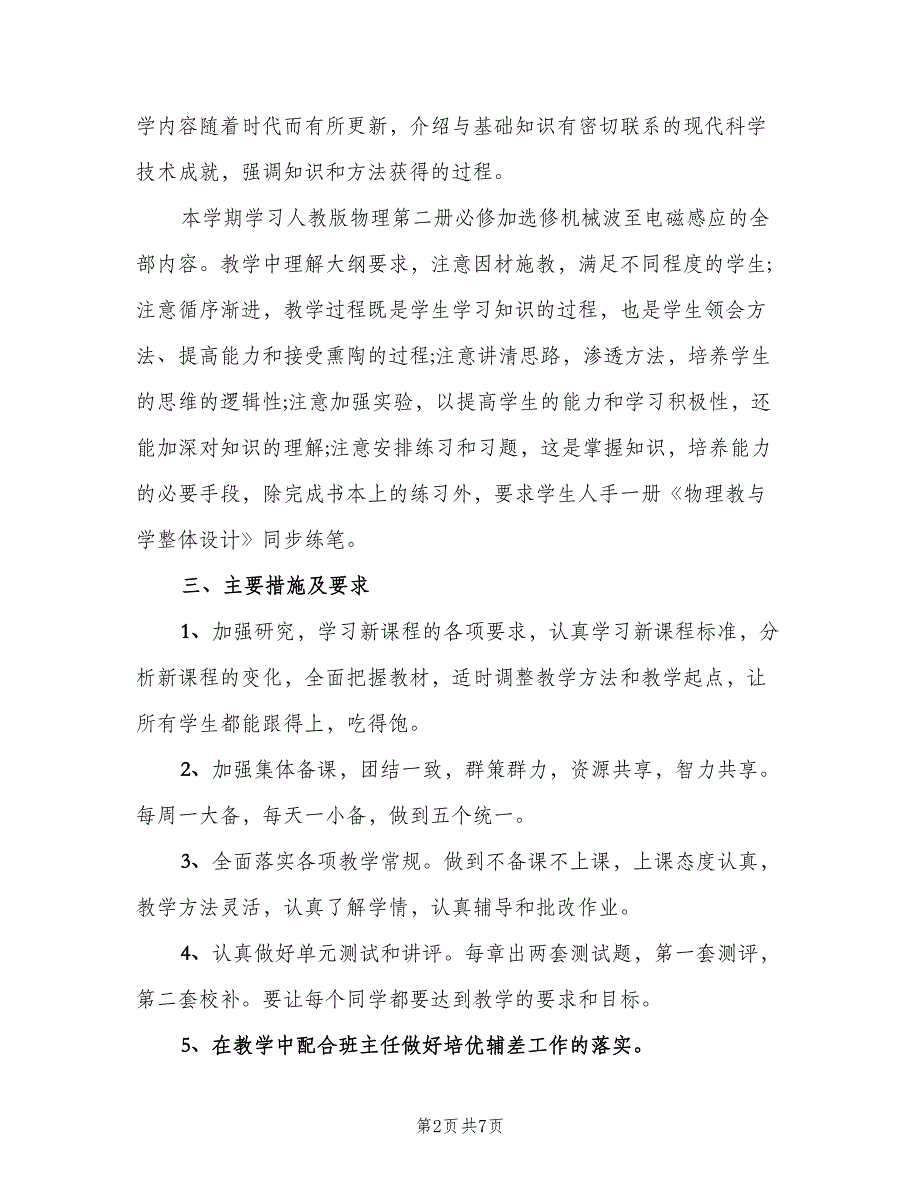 学内容随着时代而有所更新，介绍与基础知识有密切联系的现代科学
技术成就，强调知识和方法获得的过程。
本学期学习人教版物理第二册必修加选修机械波至电磁感应的全
部内容。教学中理解大纲要求，注意因材施教，满足不同程度的学生;
注意循序渐进，教学过程既是学生学习知识的过程，也是学生领会方
法、提高能力和接受熏陶的过程;注意讲清思路，渗透方法，培养学生
的思维的逻辑性;注意加强实验，以提高学生的能力和学习积极性，还
能加深对知识的理解;注意安排练习和习题，这是掌握知识，培养能力
的必要手段，除完成书本上的练习外，要求学生人手一册《物理教与
学整体设计》同步练笔。
三、主要措施及要求
1、加强研究，学习新课程的各项要求，认真学习新课程标准，分
析新课程的变化，全面把握教材，适时调整教学方法和教学起点，让
所有学生都能跟得上，吃得饱。
2、加强集体备课，团结一致，群策群力，资源共享，智力共享。
每周一大备，每天一小备，做到五个统一。
3、全面落实各项教学常规。做到不备课不上课，上课态度认真，
教学方法灵活，认真了解学情，认真辅导和批改作业。
4、认真做好单元测试和讲评。每章出两套测试题，第一套测评，
第二套校补。要让每个同学都要达到教学的要求和目标。
5、在教学中配合班主任做好培优辅差工作的落实。
第2页共7页